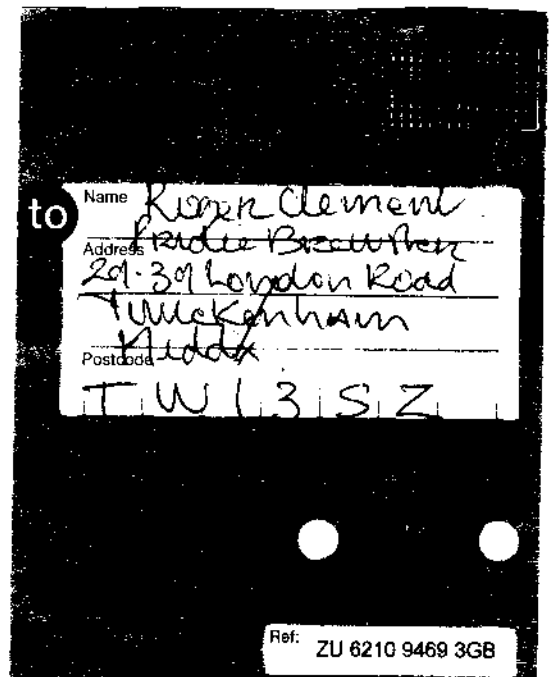 to
Name Roger Clement
Address Pridie Brewster
29.39 London Road
Twickenham
Middx
Postcode
TW1 3SZ
Ref: ZU 6210 9469 3GB